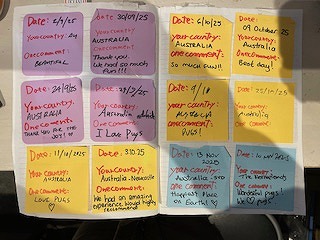 Date:
Your country:
One comment:
BEAUTIFUL
Date: 30/09/25
Your country:
AUSTRALIA
One comment:
Thank you
We had so much
fun!!!
Date: 6/10/25
Your country:
AUSTRALIA
One comment:
SO much FUN!!
Date:
09 October 25
Your country:
Australia
One comment:
Best day!
Date: 24/9/25
Your country:
AUSTRALIA
One comment:
THANK YOU FOR THE
JOY!
Date:
Your country:
Australia
One comment:
I Love Pugs
Date: 9/10
Your country:
AUSTRALIA
One comment:
PUGS!
Date:
Your country:
Australia
One comment:
Date: 11/10/2025
Your country:
AUSTRALIA
One comment:
LOVE PUGS
Date:
Your country:
Australia - Newcastle
One comment:
We had an amazing
experience would highly
recommend
Date: 13 Nov
2025
Your country:
Australia
One comment:
Happiest Place
on Earth!
Date: 10 Nov 2025
Your country:
The Netherlands
One comment:
Wonderful pugs!
We ♡ pugs